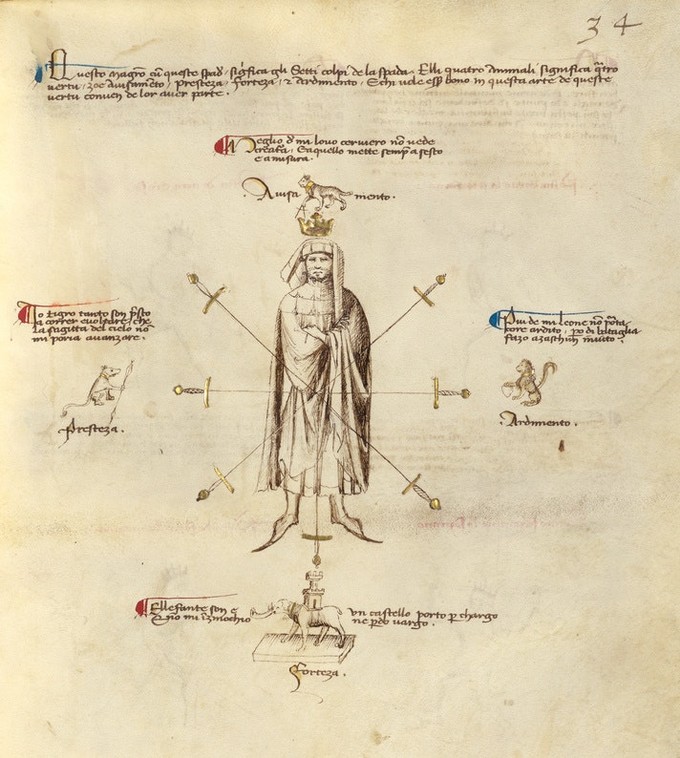 34
Questo magro cū queste spad. sig̅fica gli Setti colpi de la spada. Elli quatro animali significa q̅tro
vertu, zoe avisam̅eto, Presteza, forteza, & Ardimento, E chi vole ess̅ bono in questa arte de queste
vertu conven de lor aver parte.
Meglio d̅ mi lovo cerviero nō vede
creatā. Eaquello mette semp̅ a sesto
e a misura.
Avisa mento.
Io tigro tanto son p̅sto
a correr e voltare, che
la sagitta del cielo nō
mi poria avanzare.
Presteza.
Più de mi leone nō porta
core ardito, po di bataglia
fazo a zaschun invito.
Ardimento.
Ellefante son e un castello porto p̅ chargo
E nō mi inzenochio ne p̅do vargo.
Forteza.